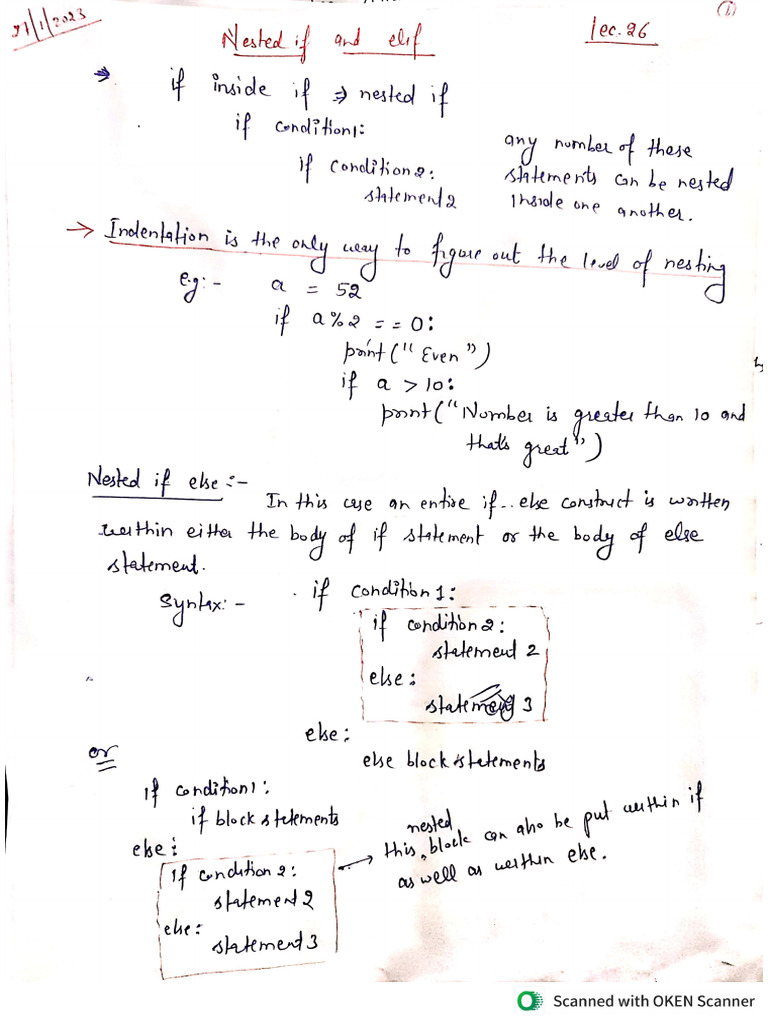 21/1/2023
(1)
Nested if and elif
lec.26
if inside if ⇒ nested if
if condition1:
if condition2:
statement2
any number of these
statements can be nested
inside one another.
→ Indentation is the only way to figure out the level of nesting
e.g:- a = 52
if a%2 == 0:
print("Even")
if a > 10:
print("Number is greater than 10 and
that's great")
Nested if else:-
In this case an entire if..else construct is written
within either the body of if statement or the body of else
statement.
Syntax:-
if condition1:
if condition2:
statement 2
else:
statement 3
else:
else block statements
or
if condition1:
if block statements
else:
if condition 2:
statement2
else:
statement3
→ this nested block can also be put within if
as well as within else.
Scanned with OKEN Scanner